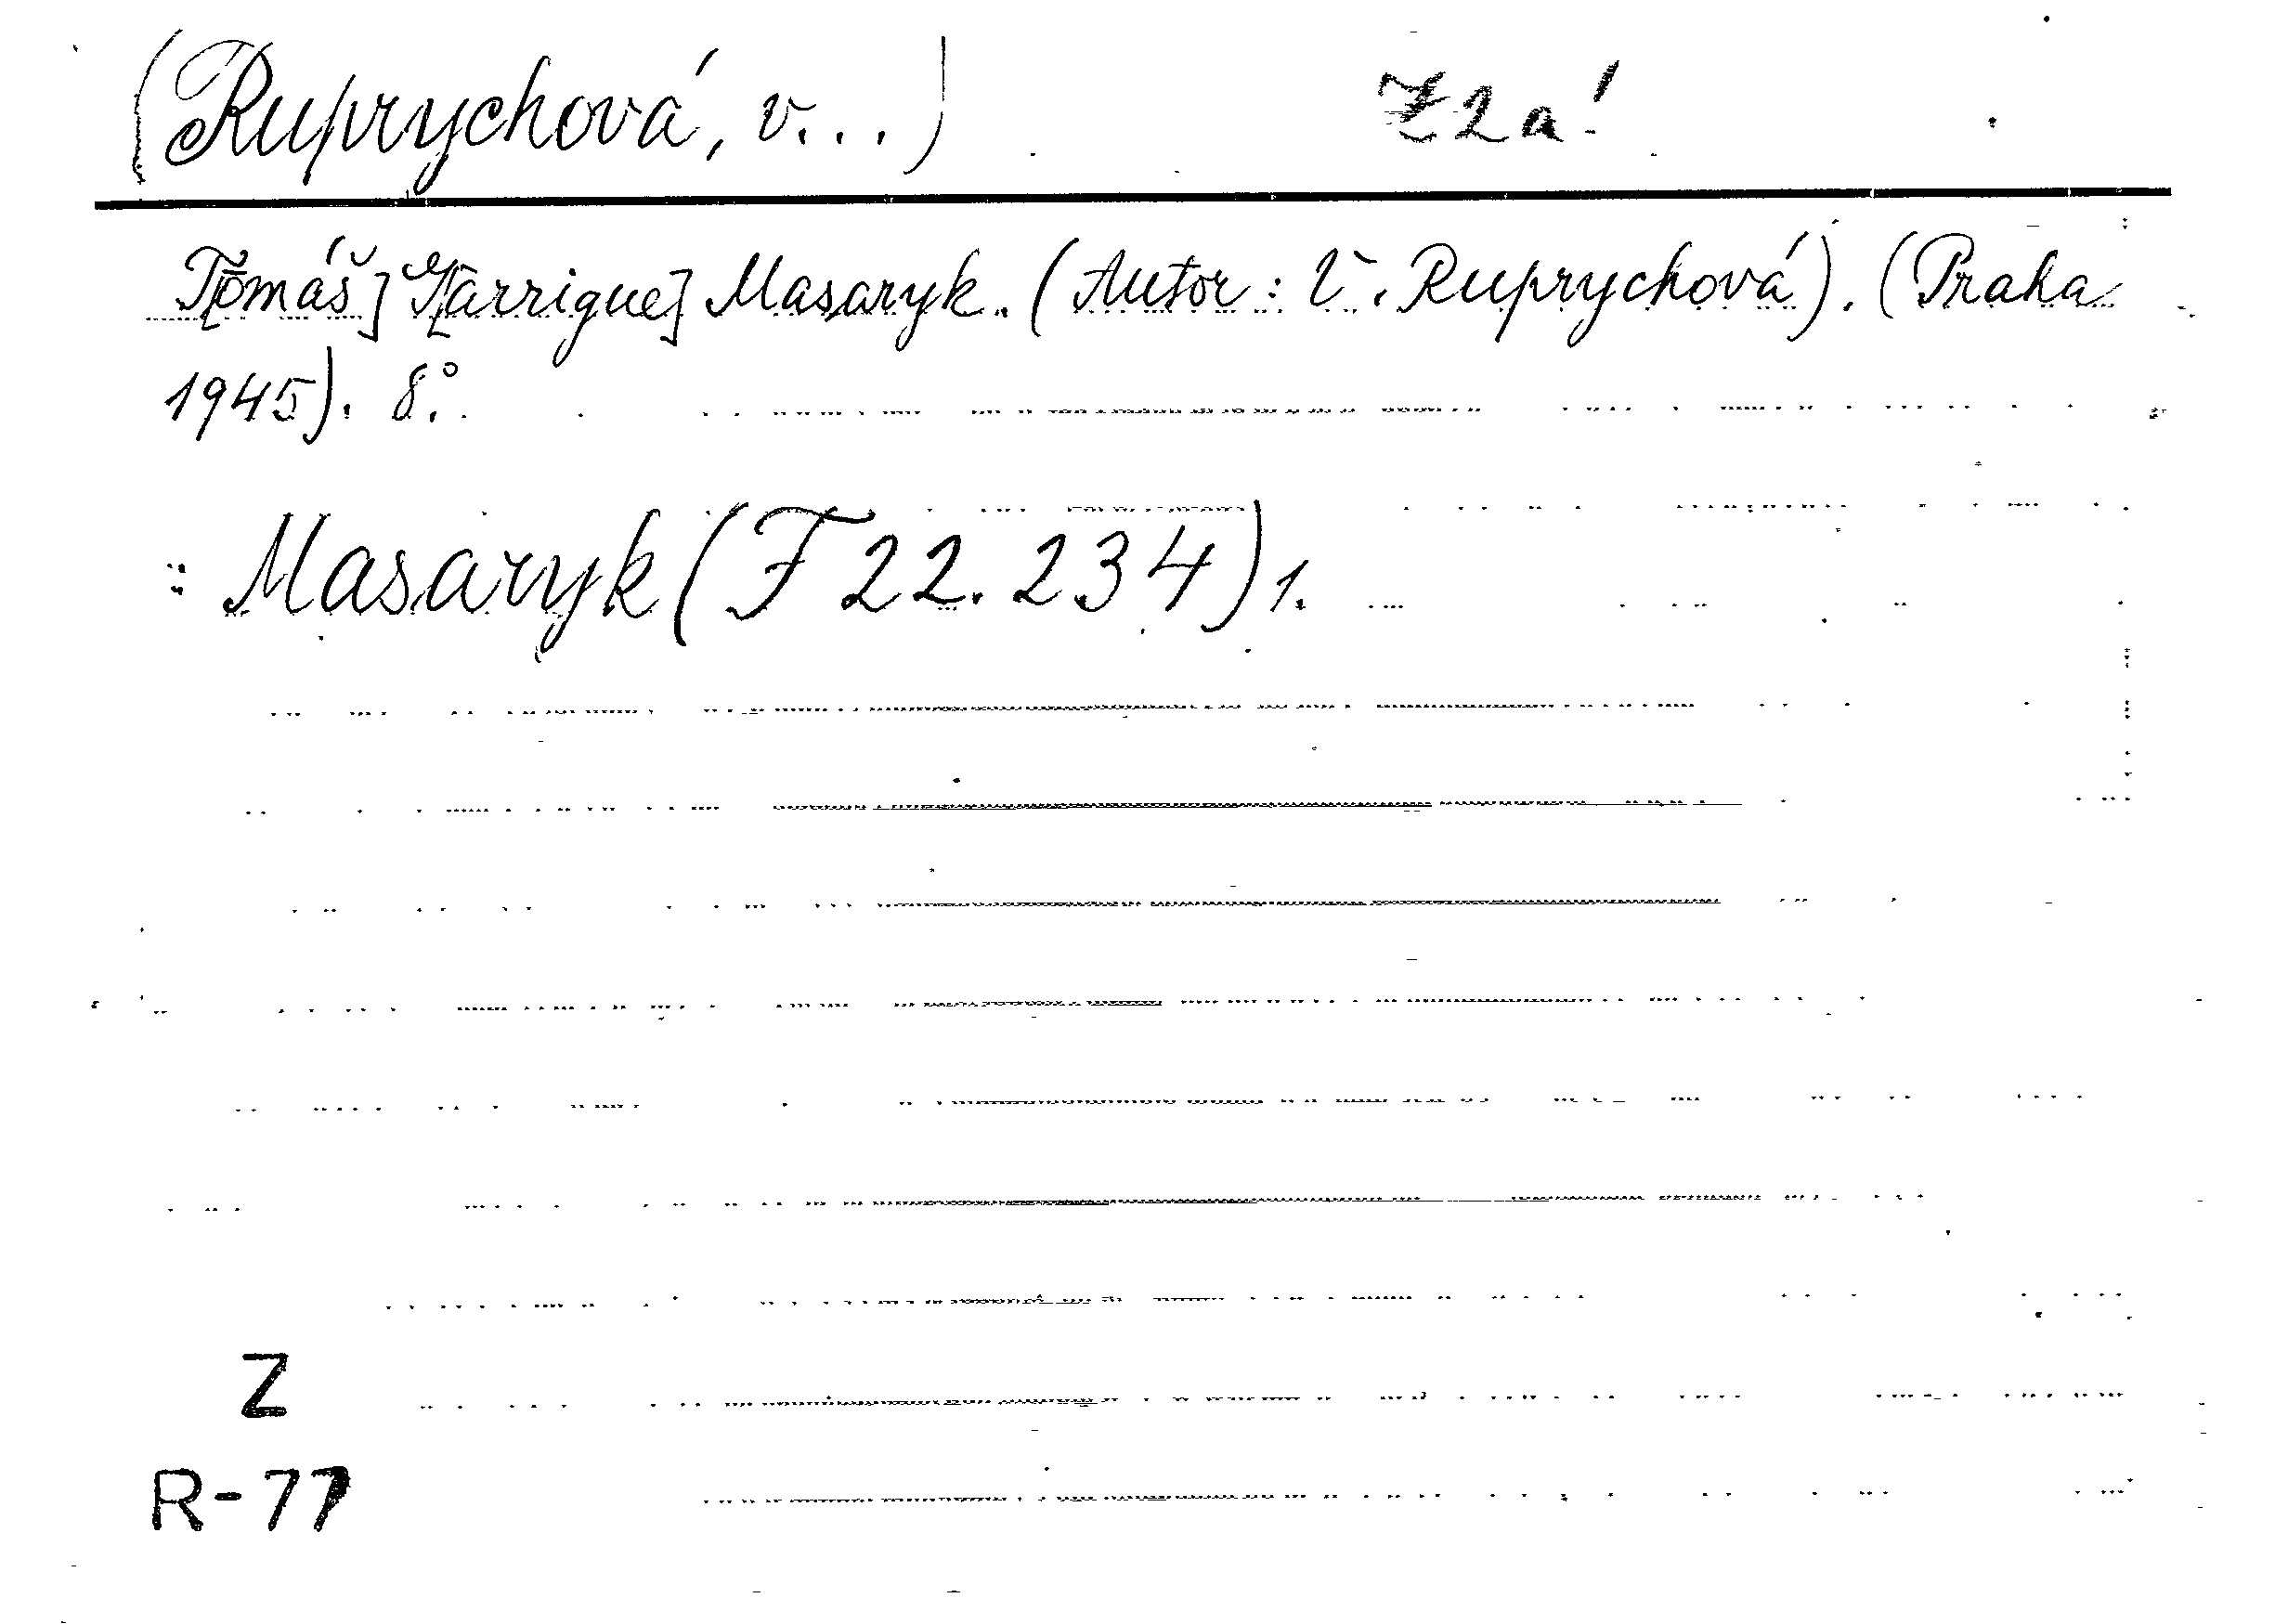 (Ruprychová, V...) Z2a!
T[omáš] G[arrigue] Masaryk. (Autor: V. Ruprychová). (Praha
1945). 8°.
: Masaryk (F 22.234) 1.
Z
R-77